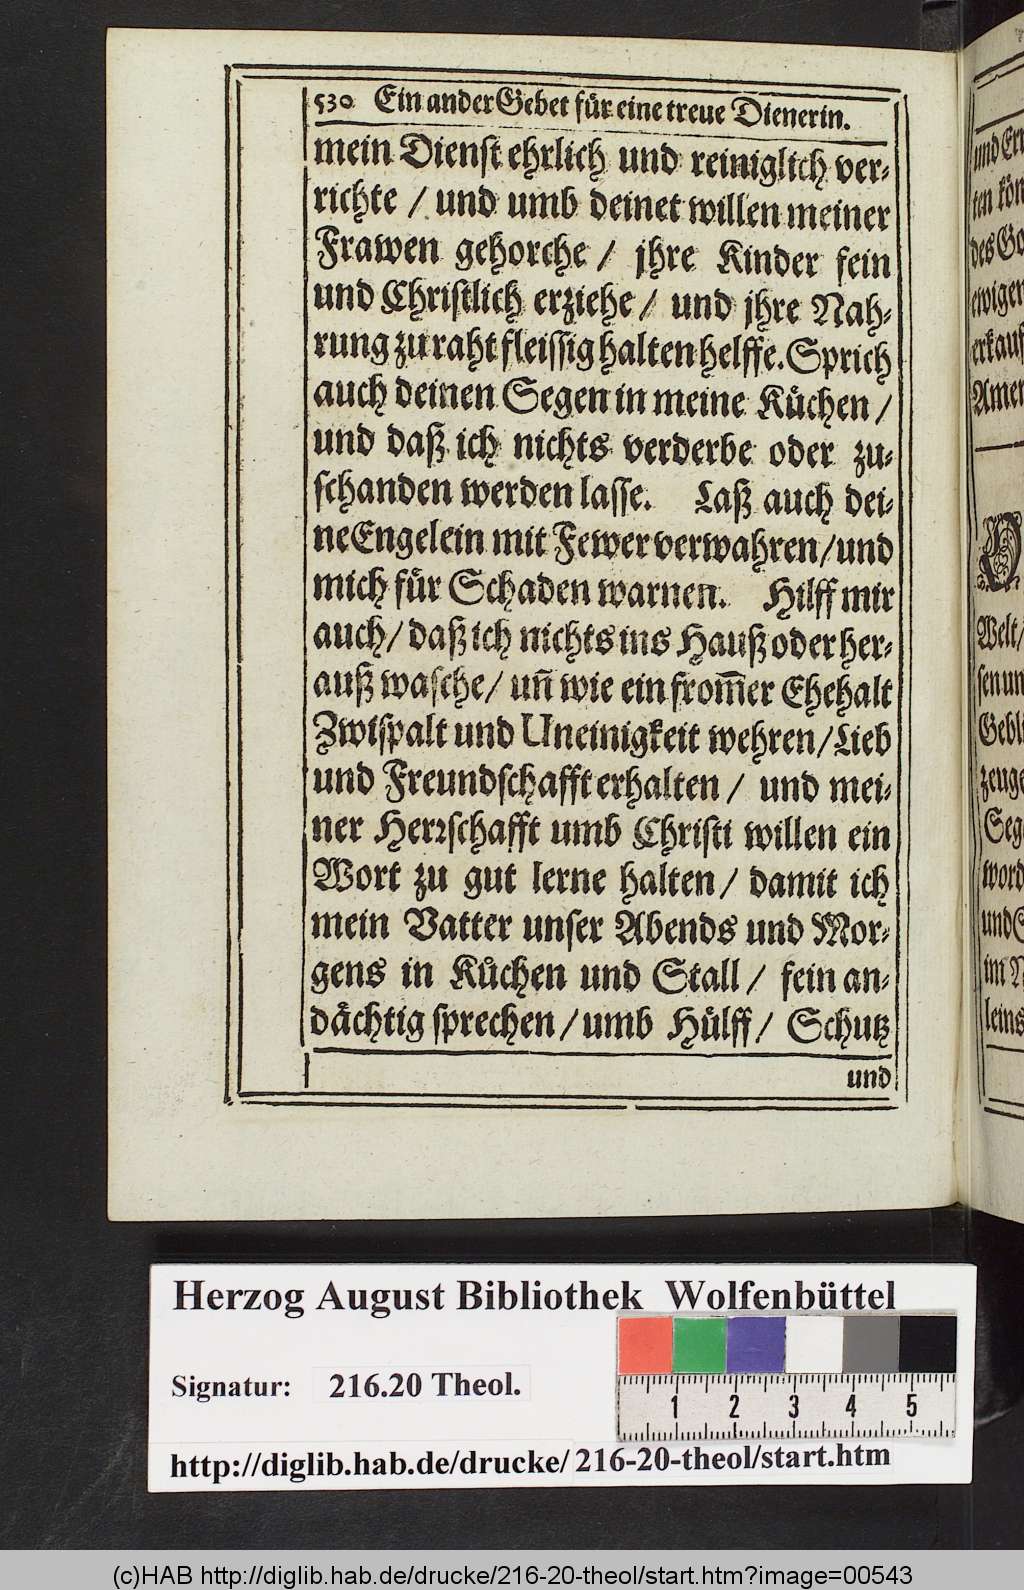 530 Ein ander Gebet für eine treue Dienerin.
mein Dienst ehrlich und reiniglich ver-
richte / und umb deinet willen meiner
Frawen gehorche / jhre Kinder fein
und Christlich erziehe / und jhre Nah-
rung zu raht fleissig halten helffe. Sprich
auch deinen Segen in meine Küchen /
und daß ich nichts verderbe oder zu-
schanden werden lasse. Laß auch dei-
ne Engelein mit Fewer verwahren / und
mich für Schaden warnen. Hilff mir
auch / daß ich nichts ins Hauß oder her-
auß wasche / uñ wie ein from̃er Ehehalt
Zwispalt und Uneinigkeit wehren / Lieb
und Freundschafft erhalten / und mei-
ner Herrschafft umb Christi willen ein
Wort zu gut lerne halten / damit ich
mein Vatter unser Abends und Mor-
gens in Küchen und Stall / fein an-
dächtig sprechen / umb Hülff / Schutz
und
und Er
ten kön
des Go
ewigen
erkauf
Amen
Welt /
sen un
Geblü
zeuge
Seg
word
und S
im N
leins
Herzog August Bibliothek Wolfenbüttel
Signatur: 216.20 Theol.
1 2 3 4 5
http://diglib.hab.de/drucke/216-20-theol/start.htm
(c)HAB http://diglib.hab.de/drucke/216-20-theol/start.htm?image=00543